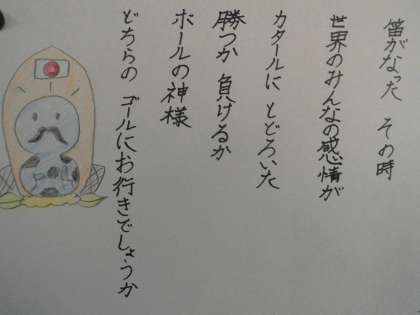 笛がなった その時
世界のみんなの感情が
カタールに とどろいた
勝つか 負けるか
ボールの神様
どちらの ゴールにお行きでしょうか